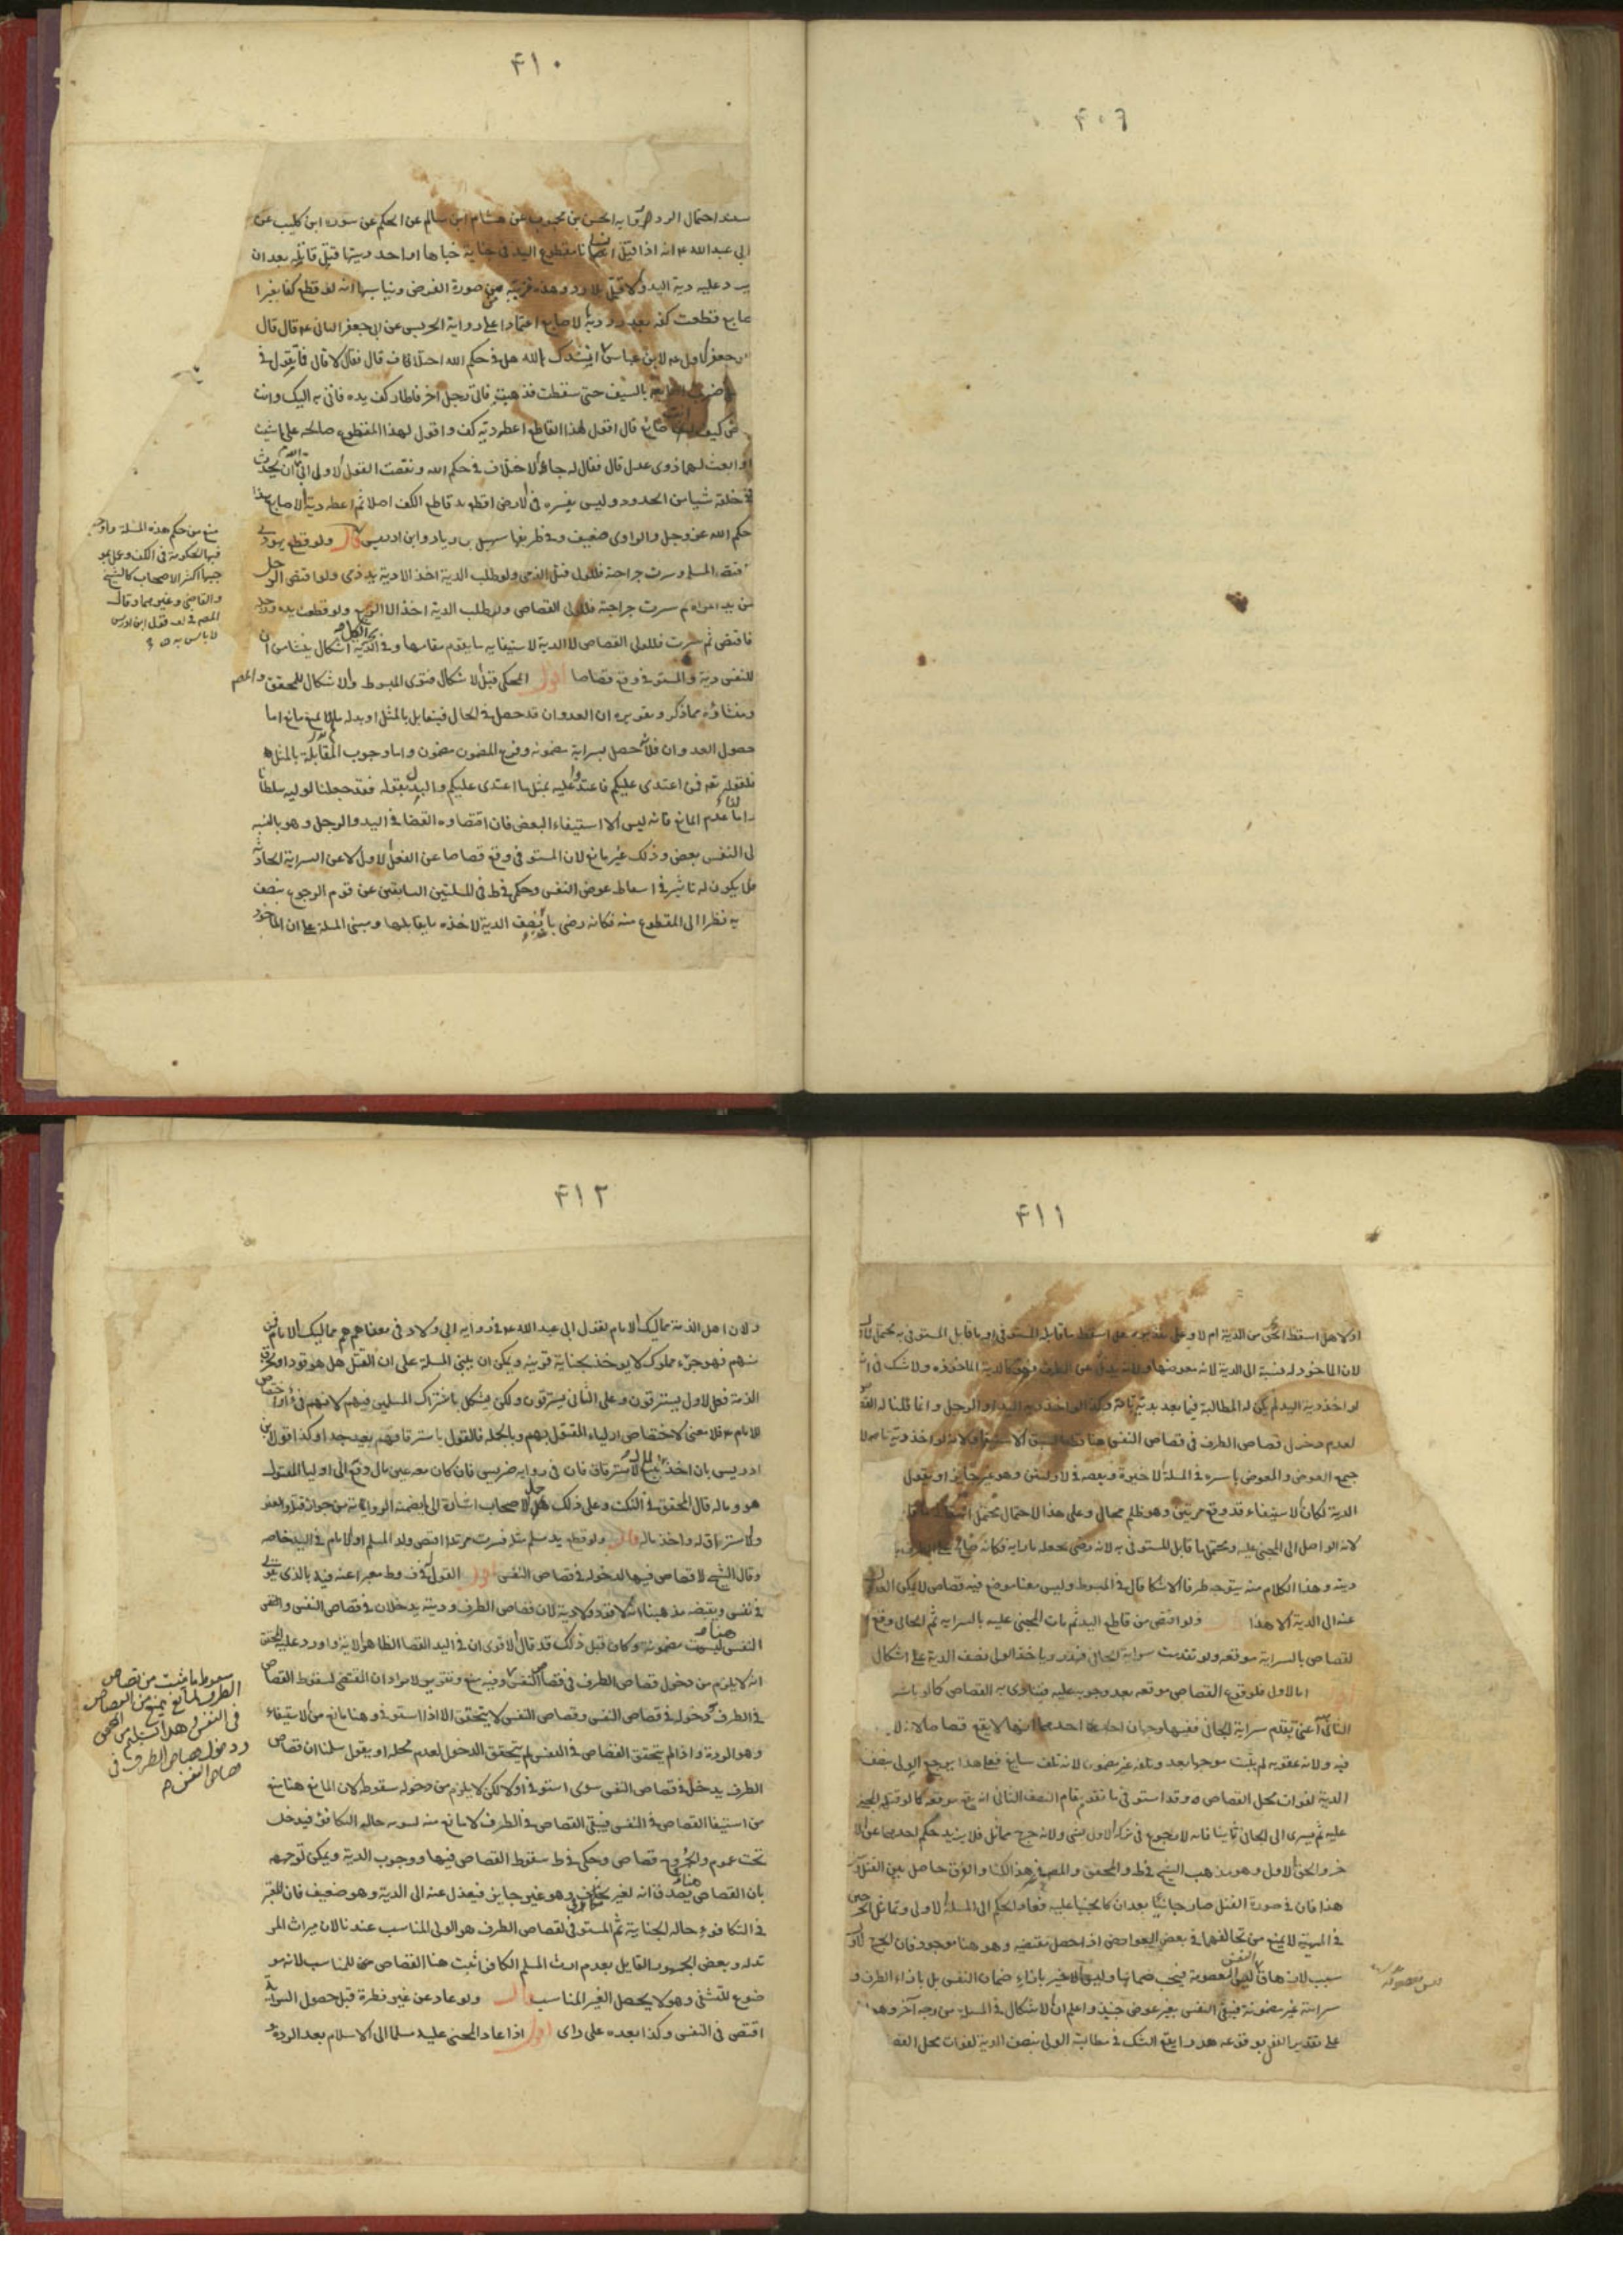 ۴۰۶
۴۱۰
سند احتمال الرد رواية الحسن بن محبوب عن هشام ابن سالم عن الحكم عن سورة ابن كليب عن
ابي عبد الله ع انه اذا قتل مقطوع اليد في جناية جناها او اخذ ديتها قتل قاتله بعد ان
يرد عليه دية اليد والا قتل بلا رد وهذه قريبة من صورة الفرض ويناسبها انه لو قطع كفا بغير ا
صابع قطعت كفه بعد رد دية الاصابع اعتمادا على رواية الحريس عن ابي جعفر الثاني ع قال قال
ابو جعفر الاول ع لابن عباس انشدك الله هل في حكم الله اختلاف قال فقال لا قال فما تقول في
ضرب اصابعه بالسيف حتى سقطت فذهبت فاتى رجل اخر فاطار كف يده فاتي به اليك وانت
قاض كيف انت صانع قال اقول لهذا القاطع اعطه دية كف واقول لهذا المقطوع صالحه على ما شئت
او ابعث لهما ذوي عدل قال فقال له جاء الاختلاف في حكم الله ونقضت القول الاول ابى الله ان يحدث
في خلقه شيا من الحدود وليس تفسيره في الارض اقطع يد قاطع الكف اصلا ثم اعطه دية الاصابع هذا
حكم الله عز وجل والراوي ضعيف وفي طريقها سهيل بن زياد وابن ادريس قال ولو قطع يهودي
فاقتص المسلم وسرت جراحته فللولي قتل الذمي ولو طلب الدية اخذ الا دية يد ذمي ولو اقتص الرجل
من يد امراة ثم سرت جراحته فللولي القصاص ولو طلب الدية اخذ الا الربع ولو قطعت يده ورجله
فاقتص ثم سرت فللولي القصاص لا الدية لاستيفايه ما يقوم مقامها وفي الكل اشكال ينشا من ان
للنفس دية والمستوفي وقع قصاصا اقول المحكي قبل الاشكال فتوى المبسوط والاشكال للمحقق والمص
ومنشاؤه مما ذكر وتقريره ان العدوان قد حصل في الحال فيقابل بالمثل او بدله ما لم يمنع مانع اما
حصول العدوان فلانه حصل بسراية مضمونة وفرع المضمون مضمون واما وجوب المقابلة بالمثل
فلقوله تعه فمن اعتدى عليكم فاعتدوا عليه بمثل ما اعتدى عليكم والبدل بقوله فقد جعلنا لوليه سلطانا
واما عدم المانع فانه ليس الا استيفاء البعض فان اقتصاره القضا في اليد والرجل وهو بالنسبة
الى النفس بعض وذلك غير مانع لان المستوفى وقع قصاصا عن الفعل الاول لا عن السراية الحادثة
فلا يكون له تاثير في اسقاط عوض النفس وحكي في ط في المسئلتين السابقتين عن قوم الرجوع بنصف
دية نظرا الى المقطوع منه فكانه رضي بان نصف الدية لاخذه ما يقابلها ومبنى المسئلة على ان الماخوذ
منع من حكم هذه المسئلة واوجب
فيها الحكومة في الكف وعلى مو
جبها اكثر الاصحاب كالشيخ
والقاضي وغيرهما وقال
المص في لف فقول ابن ادريس
لا باس به
۴۱۱
اولا هل اسقط الحق من الدية ام لا وعلى تقديره هل اسقط ما قابله المستوفى او ما قابل المستوفى به يحتمل الاول
لان الماخوذ له نسبة الى الدية لانه معوضها ولانه بدل عن الطرف فهو كالدية الماخوذه ولا شك في انه
لو اخذ دية اليد لم يكن له المطالبة فيما بعد بدية تامة وكذا لو اخذ دية اليد او الرجل وانما قلنا له القصاص
لعدم دخول قصاص الطرف في قصاص النفس هنا لسبق الاستيفاء ولانه لو اخذ دية تامة لا
جمع العوض والمعوض باسره في المسئلة الاخيرة وبعضه في الاولتين وهو غير جايز او يقول
الدية لكان الاستيفاء قد وقع مرتين وهو ظلم محال وعلى هذا الاحتمال يحتمل
لانه الواصل الى المجني عليه ويحتمل ما قابل المستوفى به لانه رضي بجعله بازايه فكانه صالح على الطرف
ديته وهذا الكلام منه يتوجه طرفا الاشكال قال في المبسوط وليس معنا موضع فيه قصاص لا يمكن العدول
عنه الى الدية الا هذا قال ولو اقتص من قاطع اليد ثم مات المجني عليه بالسراية ثم الجاني وقع ا
لقصاص بالسراية موقعه ولو تقدمت سراية الجاني فهدر وياخذ الولي نصف الدية على اشكال
اقول اما الاول فلوقوع القصاص موقعه بعد وجوبه عليه فيتادى به القصاص كما لو باشر
الثاني اعني تقدم سراية الجاني ففيها وجهان احدهما انها لا يقع قصاصا
فيه ولانه عقوبه لم يثبت موجبها بعد وتلفه غير مضمون لانه تلف سايغ فعلى هذا يرجع الولي بنصف
الدية لفوات محل القصاص وقد استوفى ما تقدم قام النصف الثاني انه يقع موقعه كما لو قتله المجني
عليه ثم يسري الى الجاني ثانيا فانه لا رجوع في تركة الاول بشي ولانه جرح مماثل فلا يزيد حكم احدهما عن الا
خر والحق الاول وهو مذهب الشيخ في ط والمحقق والمص في غير هذا الكتاب والفرق حاصل بين القتل و
هذا فان في صورة القتل صار جانيا بعد ان كان مجنيا عليه فعاد الحكم الى المسئلة الاولى وتماثل الجرحين
في المهية لا يمنع من تخالفهما في بعض العوارض اذا حصل مقتضيه وهو هنا موجود فان الجرح الاول
سبب لازهاق النفس المعصومة فيجب ضمانها وليس الاخير بازاء ضمان النفس بل بازاء الطرف و
سرايته غير مضمونة فيبقى النفس بغير عوض حينئذ واعلم ان الاشكال في المسئلة من وجه آخر وهو
على تقدير القول بوقوعه هدرا يقع الشك في مطالبة الولي بنصف الدية لفوات محل القصا
۴۱۲
ولان اهل الذمة مماليك الامام لقول ابي عبد الله ع في رواية ابي ولاد في معناهم هم مماليك الامام فمن
منهم فهو جزء مملوك لا يوخذ بجناية قرينه ويمكن ان يبنى المسئلة على ان القتل هل هو قود او خرق
الذمة فعلى الاول يسترقون وعلى الثاني يسترقون ولكن يشكل باشتراك المسلمين فيهم لانهم فئ او اختصاص
الامام ع فلا معنى لاختصاص اولياء المقتول بهم وبالجملة فالقول باسترقاقهم بعيد جدا وكذا قول ابن
ادريس بان اخذ المال للاسترقاق فان في رواية ضريس فان كان معه عين مال دفع الى اوليا المقتول
هو وماله قال المحقق في النكت وعلى ذلك عمل الاصحاب اشارة الى ما يضمنه الرواية من جواز قتله والعفو
والاسترقاق له واخذ ماله قال ولو قطع يد مسلم مثله فسرت مرتدا اقتص ولد المسلم او الامام في اليد خاصه
وقال الشيخ لا قصاص فيها لدخوله في قصاص النفس اقول القول في ط معبرا عنه فيه بالذي يقوى
في نفسي ويقتضيه مذهبنا الا قود ولا دية لان قصاص الطرف وديته يدخلان في قصاص النفس والنفس
هنا ليست مضمونة وكان قبل ذلك قد قال الاقوى ان في اليد القصاص لظاهر الاية واورد عليه المحقق
انه لا يلزم من دخول قصاص الطرف في قصاص النفس وفيه منع وتقريره لا مراد ان المقتضي لسقوط القصاص
في الطرف دخوله في قصاص النفس وقصاص النفس لا يتحقق الا اذا استوفي وهنا مانع من الاستيفاء
وهو الردة واذا لم يتحقق القصاص في النفس لم يتحقق الدخول لعدم محله او يقول سلمنا ان قصاص
الطرف يدخل في قصاص النفس سوى استوفي او لا لكن لا يلزم من دخوله سقوطه لان المانع هنا منع
من استيفا القصاص في النفس فيبقى القصاص في الطرف لا مانع منه لثبوته حالة التكافؤ فيدخل
تحت عموم والجروح قصاص وحكي في ط سقوط القصاص فيها ووجوب الدية ويمكن توجيهه
بان القصاص هنا يصدق انه لغير مكاف وهو غير جايز فيعدل عنه الى الدية وهو ضعيف فان المعتبر
في التكافوء حالة الجناية ثم المستوفي لقصاص الطرف هو الولي المناسب عندنا لان ميراث المر
تد له وبعض الجمهور القايل بعدم ارث المسلم الكافر اثبت هنا القصاص من المناسب لانه مو
ضوع للتشفي وهو لا يحصل لغير المناسب قال ولو عاد عن غير فطرة قبل حصول السراية
اقتص في النفس وكذا بعده على راى اقول اذا عاد المجني عليه مسلما الى الاسلام بعد الردة
سقوط ما يثبت من قصاص
الطرف لمانع يمنع من القصاص
في النفس
ودخول قصاص الطرف في
قصاص النفس